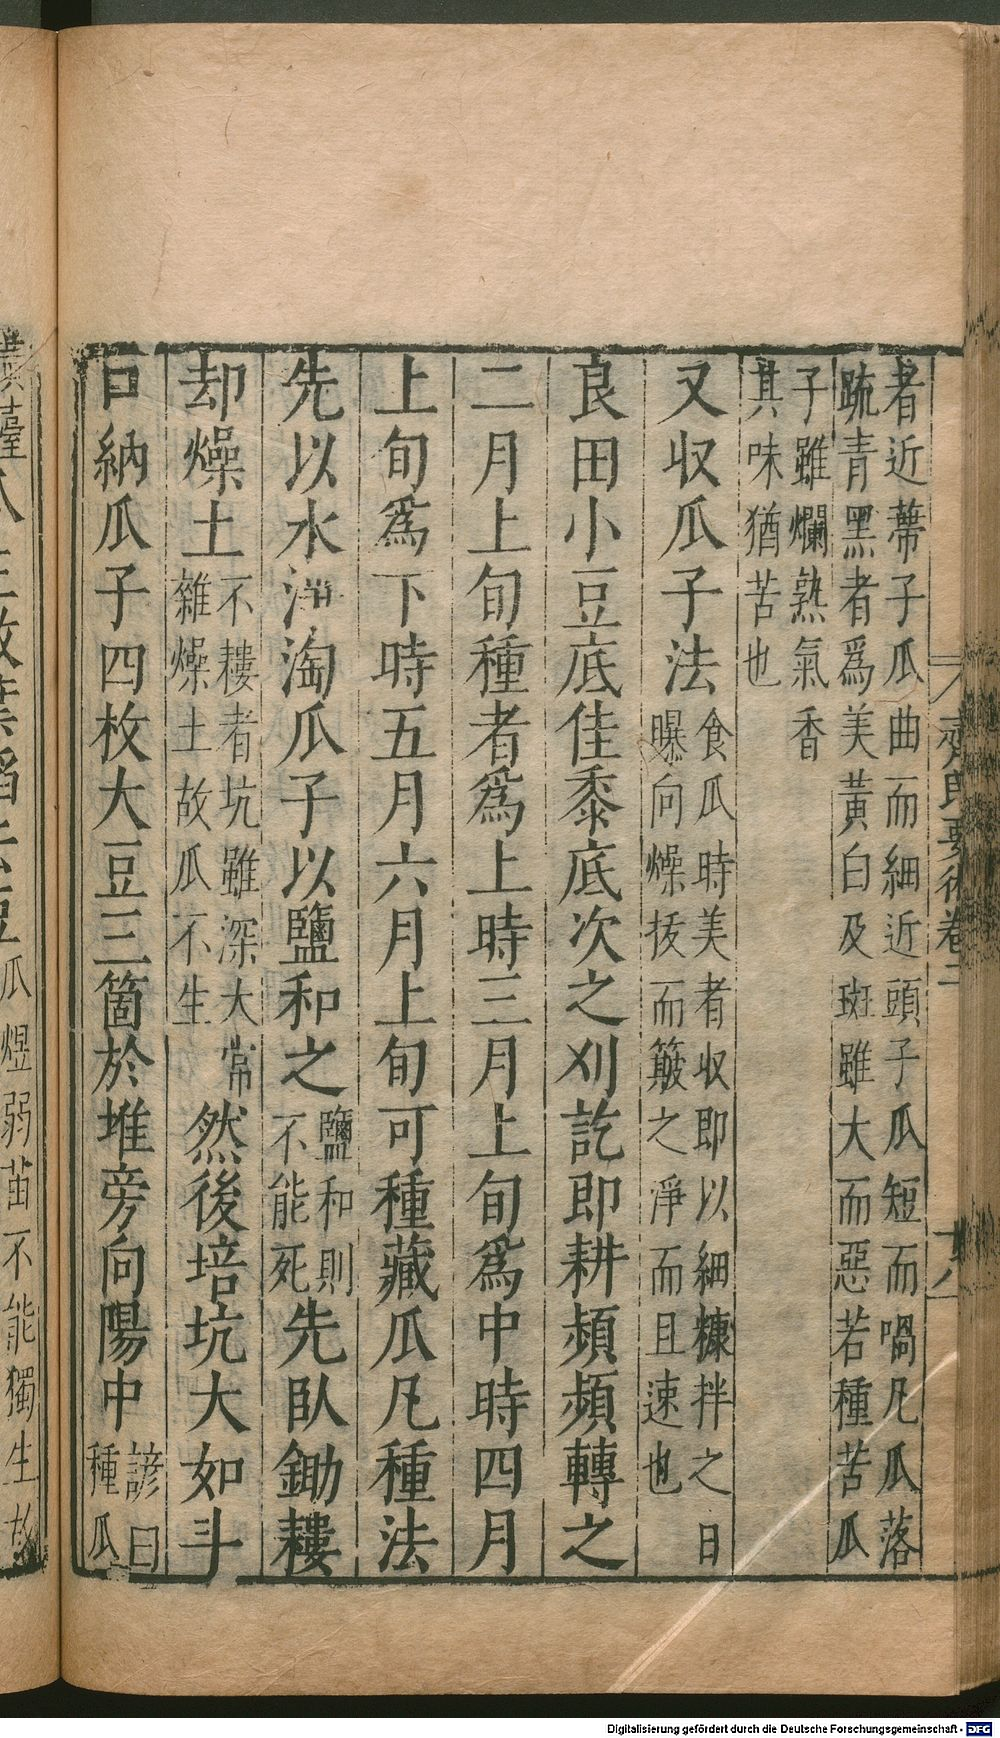 者近蔕子瓜曲而細近頭子瓜短而喎凡瓜落
疏青黑者爲美黃白及斑雖大而惡若種苦瓜
子雖爛熟氣香
其味猶苦也
又收瓜子法
食瓜時美者收即以細糠拌之日
曝向燥挼而簸之淨而且速也
良田小豆底佳黍底次之刈訖即耕頻頻轉之
二月上旬種者爲上時三月上旬爲中時四月
上旬爲下時五月六月上旬可種藏瓜凡種法
先以水淨淘瓜子以鹽和之
鹽和則
不能死
先臥鋤耬
却燥土
不耬者坑雖深大常
雜燥土故瓜不生
然後培坑大如斗
口納瓜子四枚大豆三箇於堆旁向陽中
諺曰
種瓜
瓜煜弱苗不能獨生故
齊民要術卷二
十八
Digitalisierung gefördert durch die Deutsche Forschungsgemeinschaft - DFG